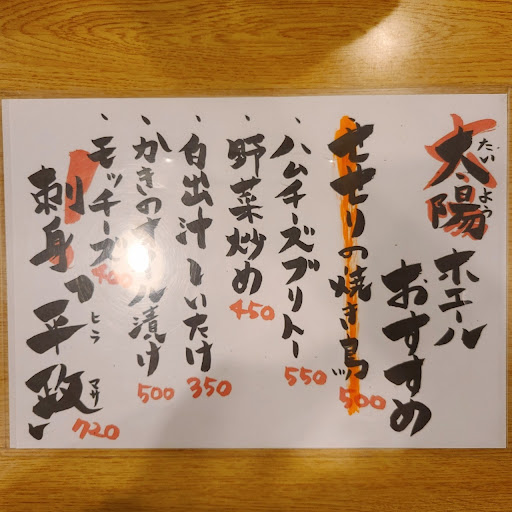 太陽
たいよう
ホエール
おすすめ
・せせりの焼き鳥 500
・ハムチーズブリトー 550
・野菜炒め 450
・白出汁しいたけ 350
・かきのオイル漬け 500
・モッチーズ 400
刺身 平政
ヒラ マサ
720